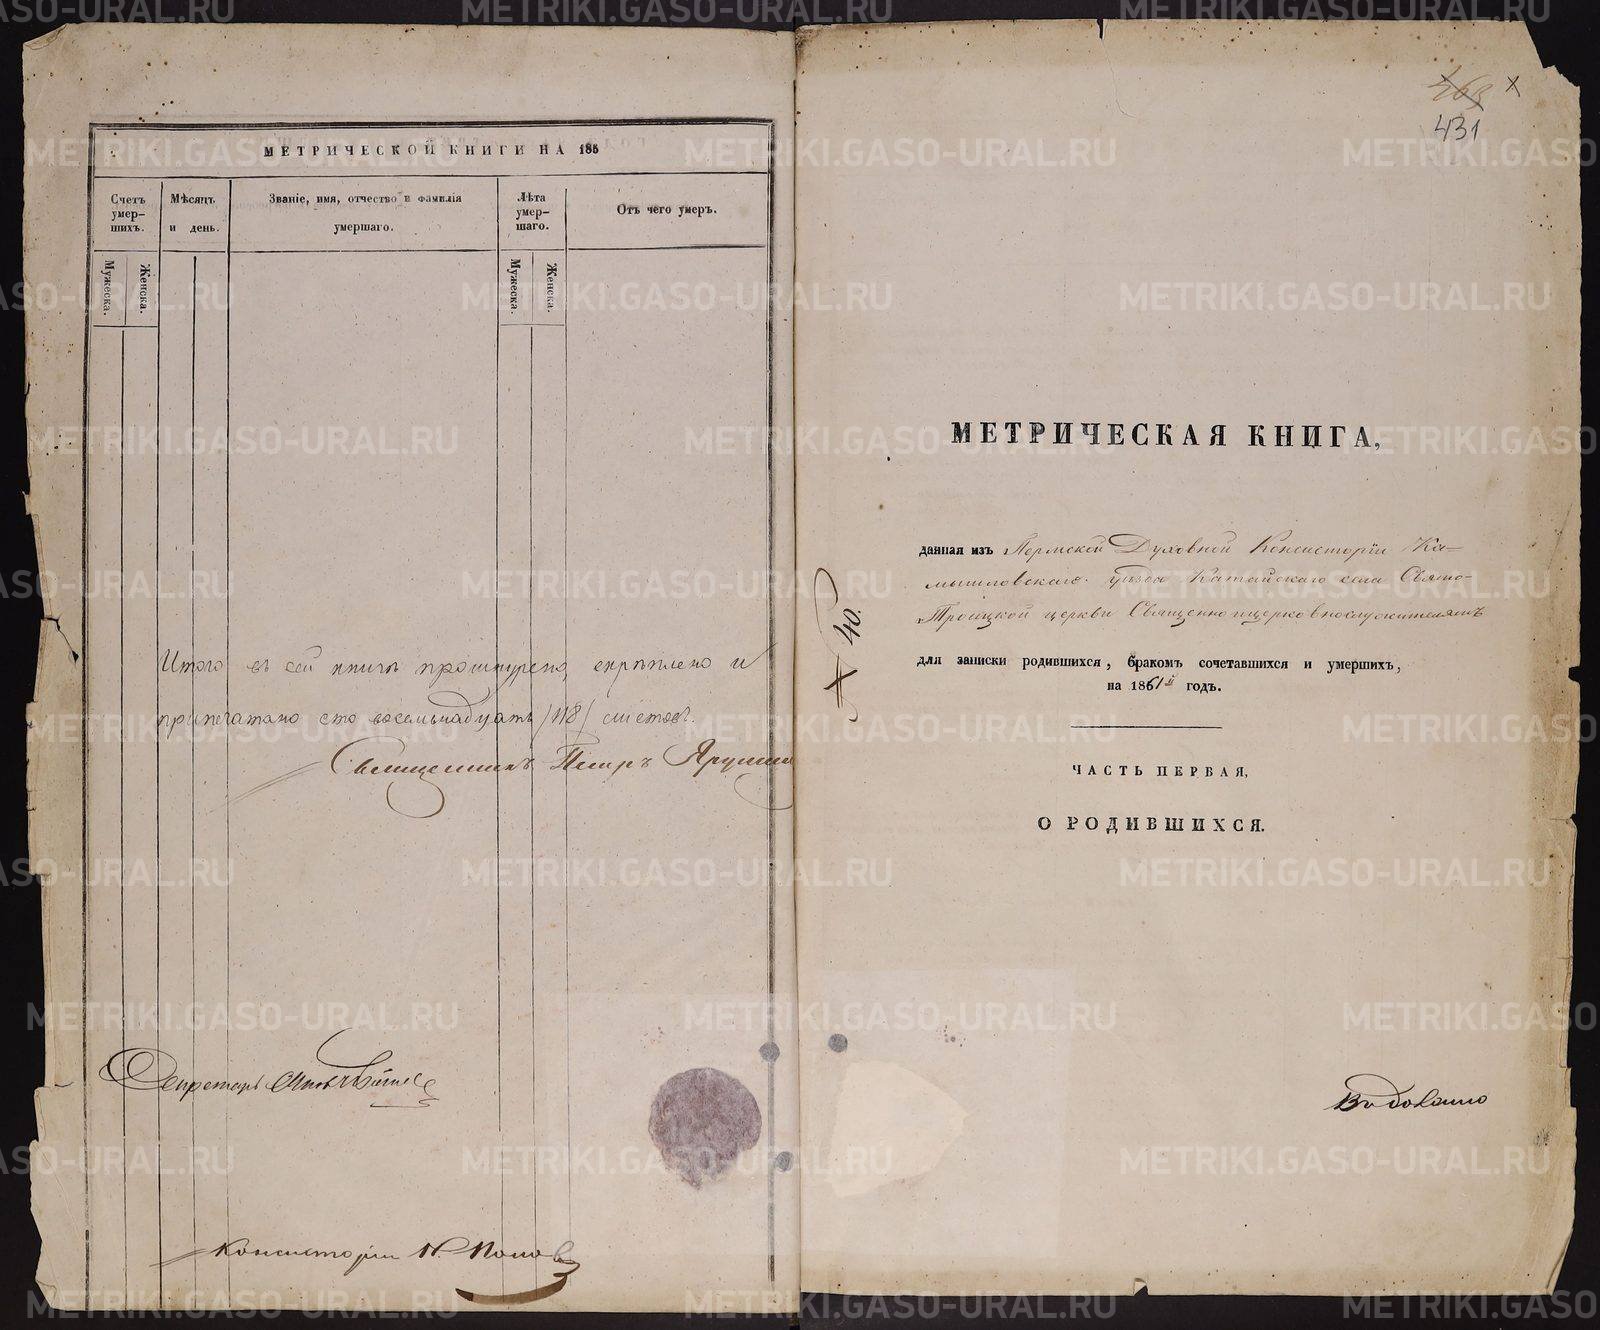 МЕТРИЧЕСКОЙ КНИГИ НА 185
Счетъ умер-шихъ.
Мѣсяцъ и день.
Званіе, имя, отчество и фамилія умершаго.
Лѣта умер-шаго.
Отъ чего умеръ.
Мужеска.
Женска.
Мужеска.
Женска.
Итого въ сей книгѣ прошнурено, скрѣплено и
припечатано сто восемьнадцать /118/ листовъ.
Священникъ Петръ
Секретарь
Консисторіи Н. Поповъ
363
431
МЕТРИЧЕСКАЯ КНИГА,
данная изъ Пермской Духовной Консисторіи Ка-
мышловскаго уѣзда Катайскаго села Свято-
Троицкой церкви Священноицерковнослужителямъ
для записки родившихся, бракомъ сочетавшихся и умершихъ,
на 1861й годъ.
ЧАСТЬ ПЕРВАЯ,
О РОДИВШИХСЯ.
40.
METRIKI.GASO-URAL.RU